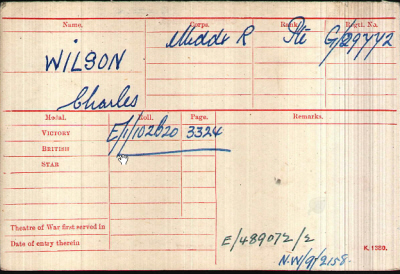 Name. Corps. Rank. Regtl. No.
WILSON Middx R Pte G/29772
Charles
Medal. Roll. Page. Remarks.
VICTORY E/1/102B20 3324
BRITISH
STAR
Theatre of War first served in
Date of entry therein
E/489072/2
N.W/9/2158.
K. 1380.